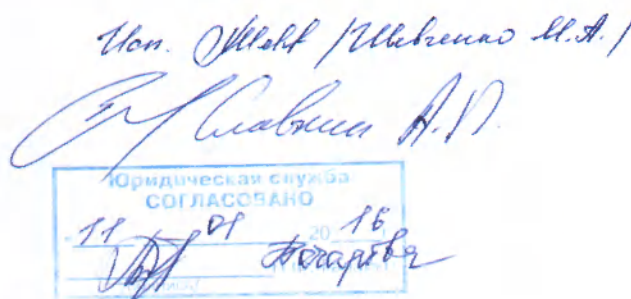 Исп. /Шевченко М.А./
Славкин А.П.
Юридическая служба
СОГЛАСОВАНО
11 01 2016
Бочарова